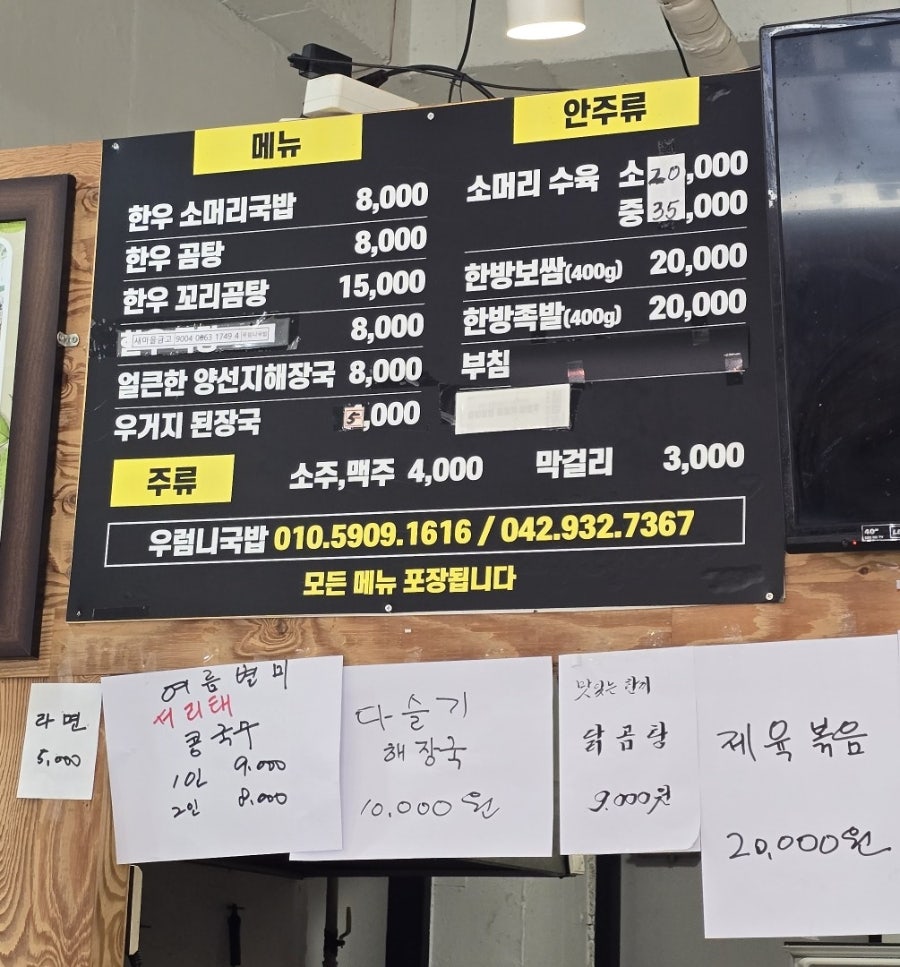 메뉴
한우 소머리국밥 8,000
한우 곰탕 8,000
한우 꼬리곰탕 15,000
새마을금고 9004 0863 1749 4 8,000
얼큰한 양선지해장국 8,000
우거지 된장국 5,000
안주류
소머리 수육 소 20,000
중 35,000
한방보쌈(400g) 20,000
한방족발(400g) 20,000
부침
주류 소주,맥주 4,000 막걸리 3,000
우럼니국밥 010.5909.1616 / 042.932.7367
모든 메뉴 포장됩니다
라면
5,000
여름별미
서리태
콩국수
1인 9.000
2인 8.000
다슬기
해장국
10,000원
맛있는 한끼
닭곰탕
9.000원
제육볶음
20,000원